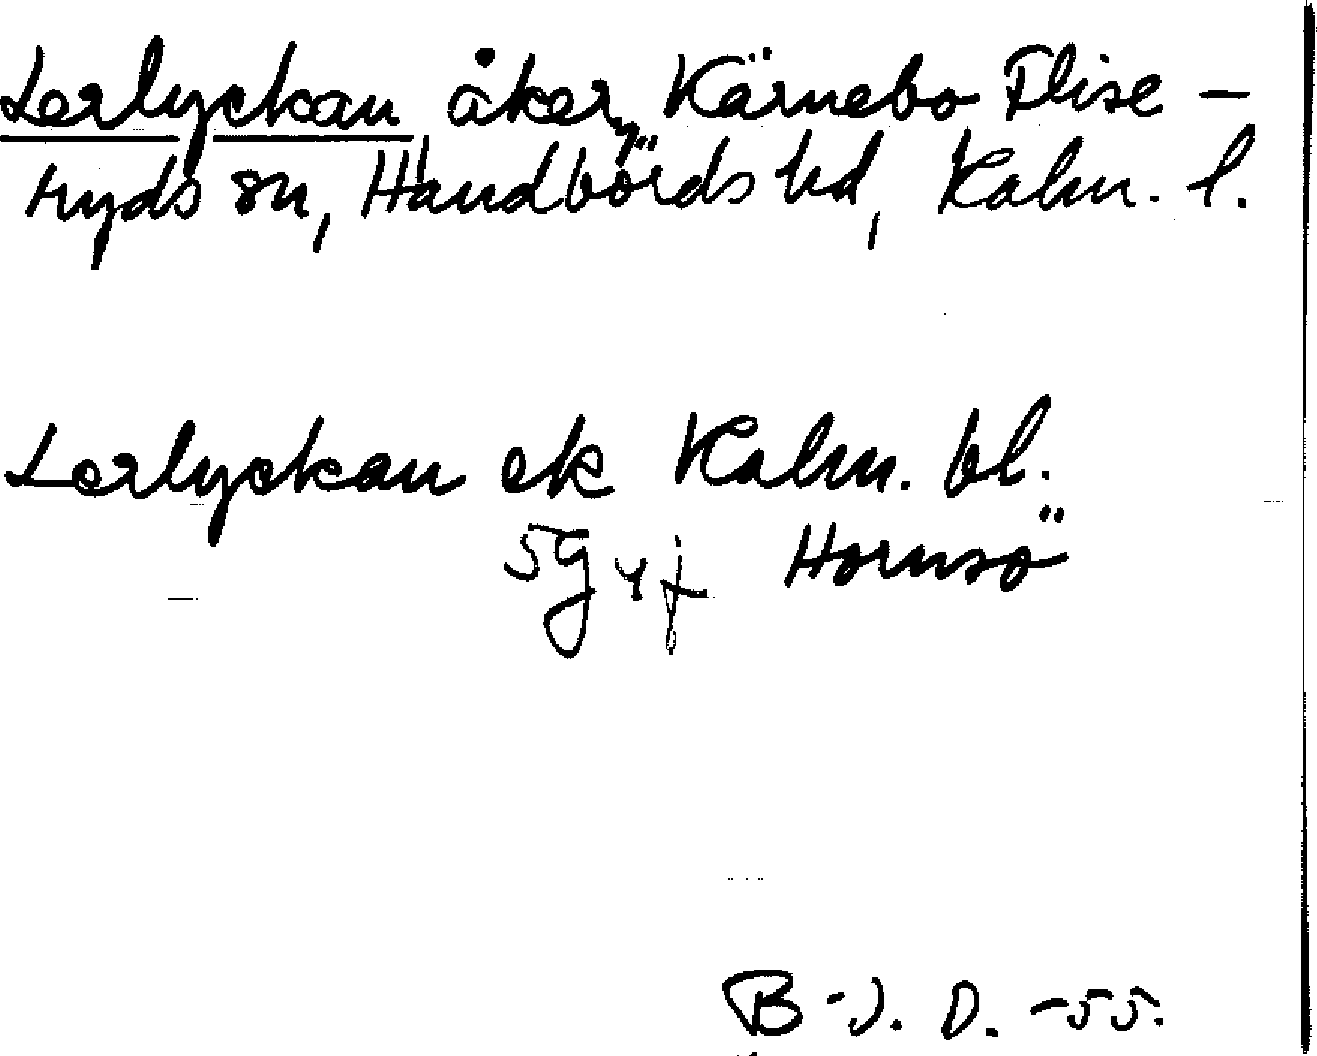 Lerlyckan åker, Kärnebo Flise-
ryds sn, Handbörds hd, Kalm. l.
Lerlyckan ek Kalm. bl.
5g 4f Hornsö
B-J. D. -55.